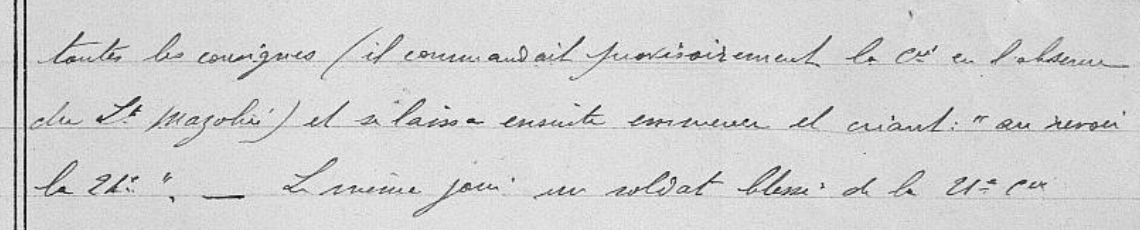 toutes les consignes (il commandait provisoirement la Cie en l'absence
du Lt Mazolié) et se laissa ensuite emmener et criant : "au revoir
la 21e". — Le même jour un soldat blessé de la 21e Cie